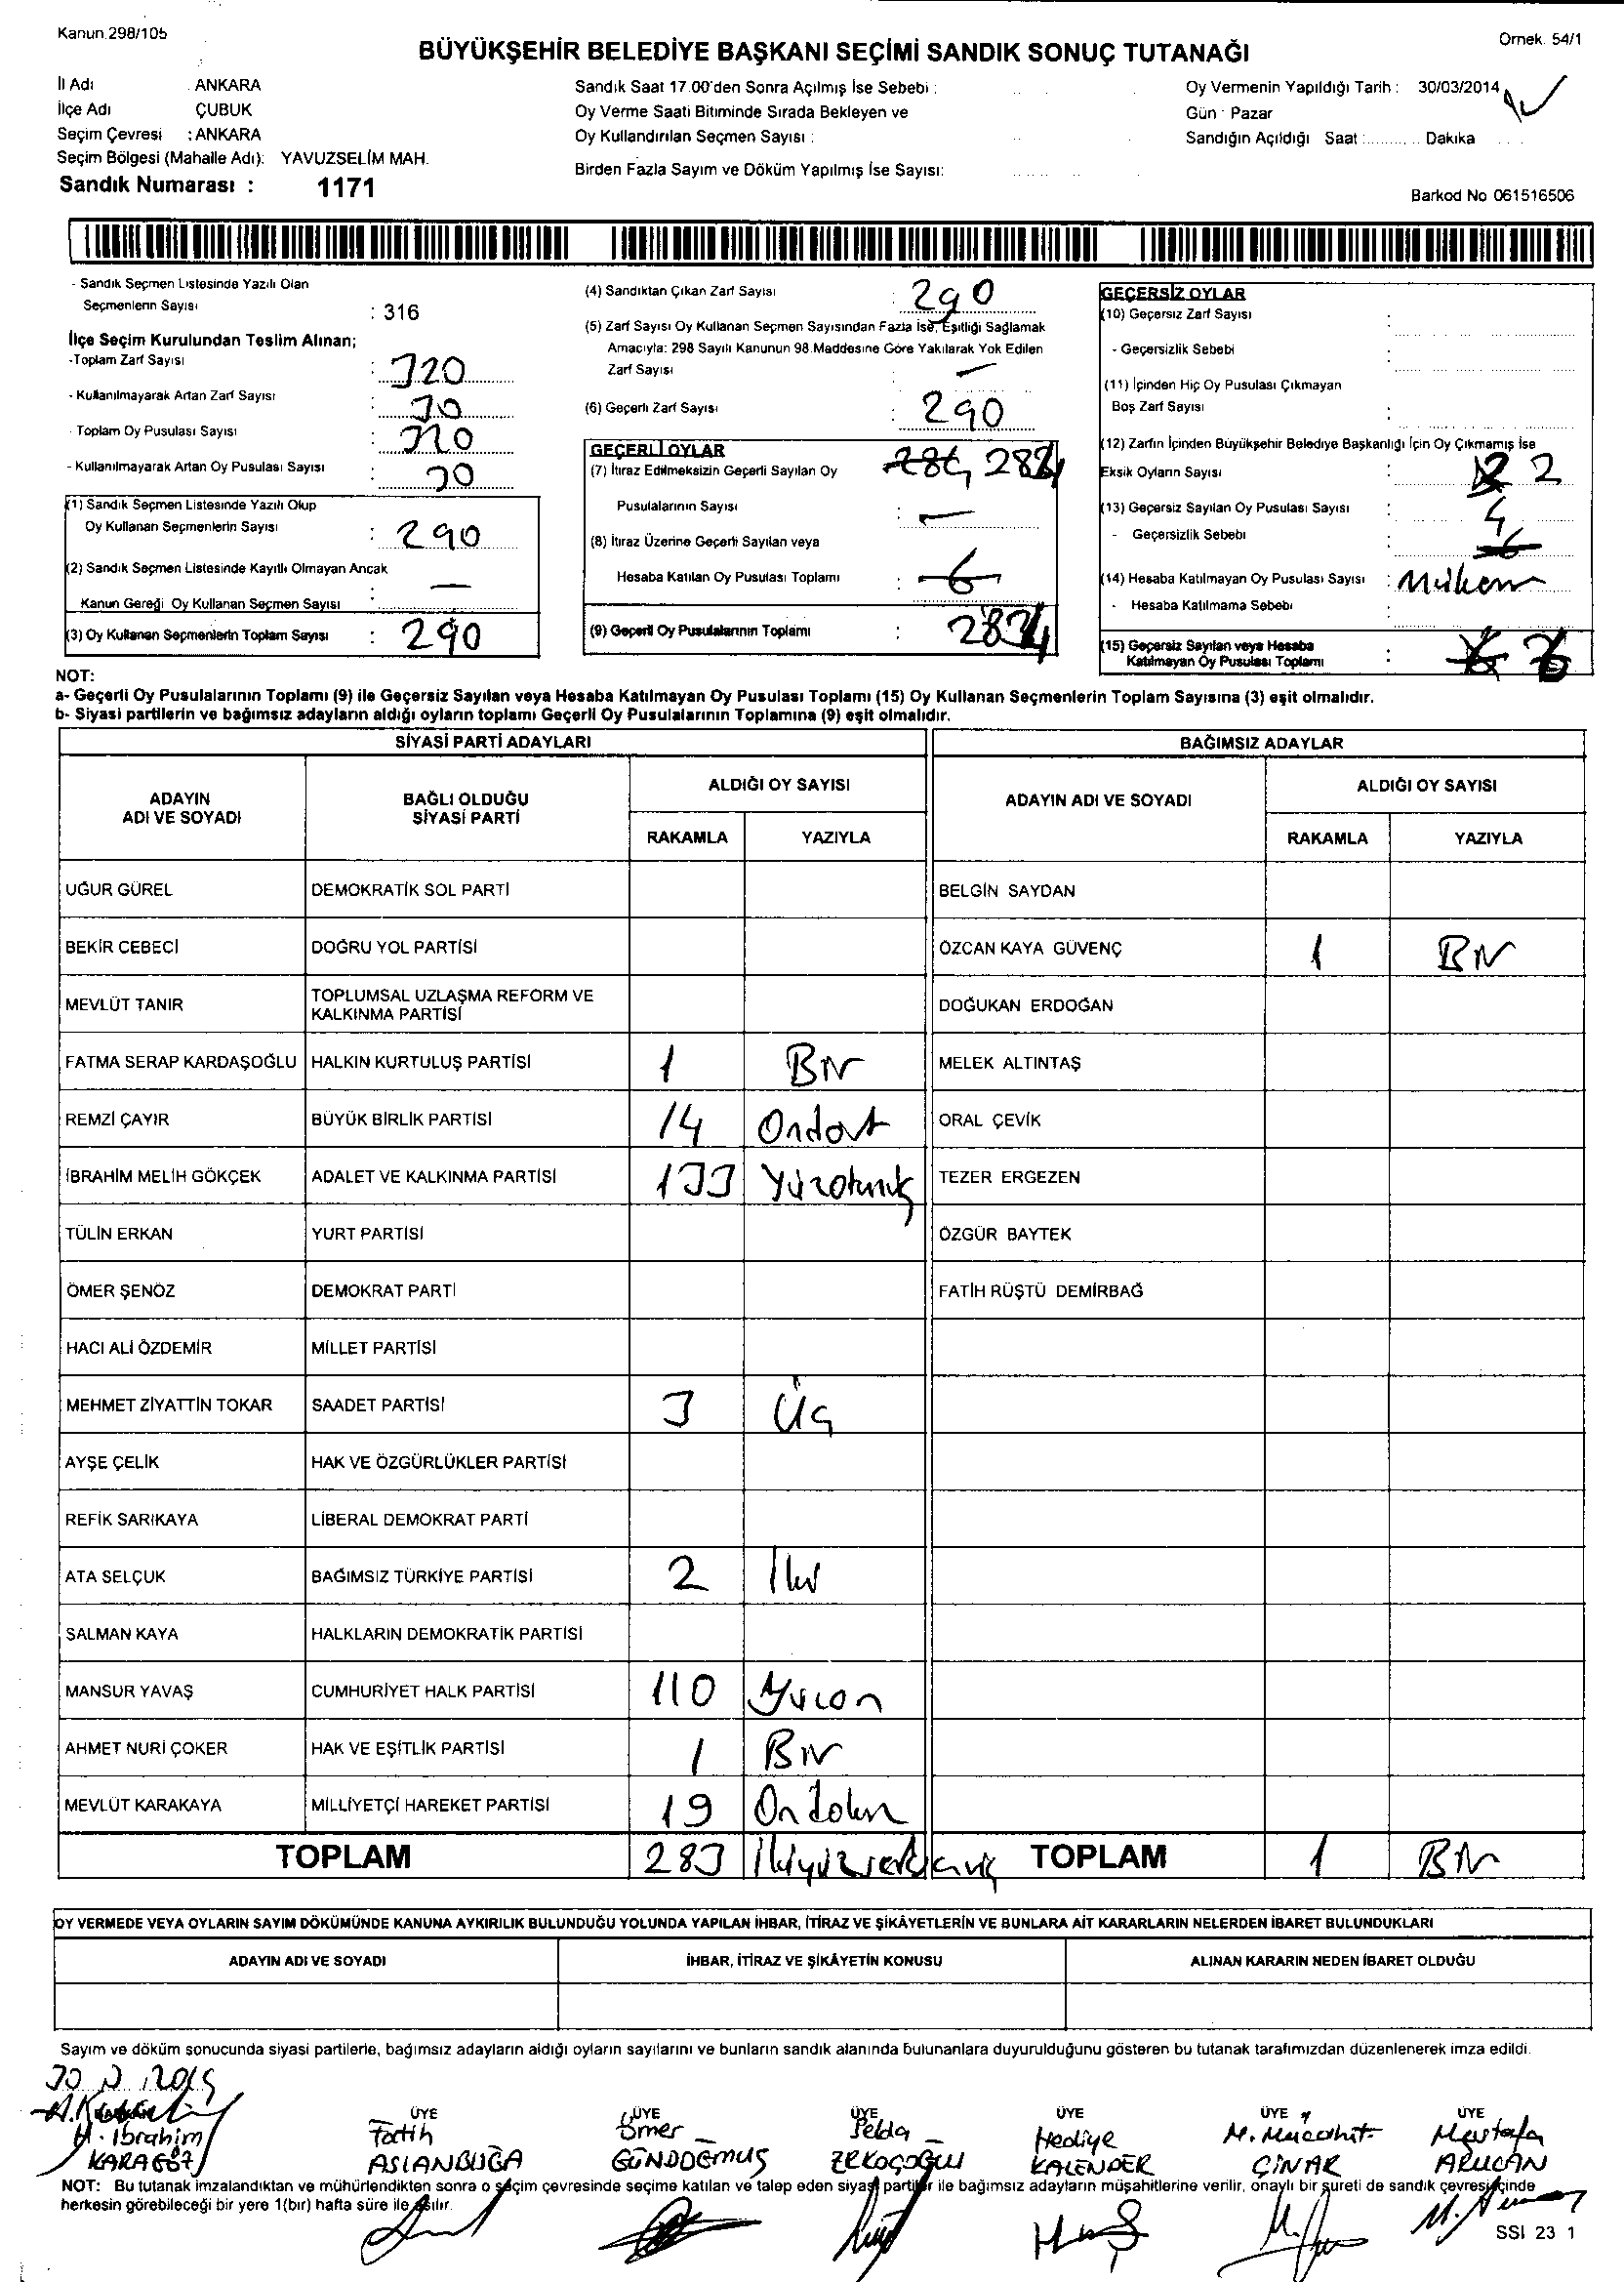 Kanun.298/105
Örnek. 54/1
BÜYÜKŞEHİR BELEDİYE BAŞKANI SEÇİMİ SANDIK SONUÇ TUTANAĞI
İl Adı : ANKARA
İlçe Adı ÇUBUK
Seçim Çevresi : ANKARA
Seçim Bölgesi (Mahalle Adı): YAVUZSELİM MAH.
Sandık Numarası : 1171
Sandık Saat 17.00'den Sonra Açılmış İse Sebebi :
Oy Verme Saati Bitiminde Sırada Bekleyen ve
Oy Kullandırılan Seçmen Sayısı :
Birden Fazla Sayım ve Döküm Yapılmış İse Sayısı:
Oy Vermenin Yapıldığı Tarih : 30/03/2014
Gün : Pazar
Sandığın Açıldığı Saat :.......... Dakika
Barkod No 061516506
- Sandık Seçmen Listesinde Yazılı Olan
Seçmenlerin Sayısı : 316
İlçe Seçim Kurulundan Teslim Alınan;
-Toplam Zarf Sayısı : 320
- Kullanılmayarak Artan Zarf Sayısı : 30
- Toplam Oy Pusulası Sayısı : 320
- Kullanılmayarak Artan Oy Pusulası Sayısı : 30
(1) Sandık Seçmen Listesinde Yazılı Olup
Oy Kullanan Seçmenlerin Sayısı : 290
(2) Sandık Seçmen Listesinde Kayıtlı Olmayan Ancak
Kanun Gereği Oy Kullanan Seçmen Sayısı : —
(3) Oy Kullanan Seçmenlerin Toplam Sayısı : 290
(4) Sandıktan Çıkan Zarf Sayısı : 290
(5) Zarf Sayısı Oy Kullanan Seçmen Sayısından Fazla İse, Eşitliği Sağlamak
Amacıyla: 298 Sayılı Kanunun 98.Maddesine Göre Yakılarak Yok Edilen
Zarf Sayısı —
(6) Geçerli Zarf Sayısı : 290
GEÇERLİ OYLAR
(7) İtiraz Edilmeksizin Geçerli Sayılan Oy
Pusulalarının Sayısı : —
(8) İtiraz Üzerine Geçerli Sayılan veya
Hesaba Katılan Oy Pusulası Toplamı : 6
(9) Geçerli Oy Pusulalarının Toplamı :
GEÇERSİZ OYLAR
(10) Geçersiz Zarf Sayısı :
- Geçersizlik Sebebi :
(11) İçinden Hiç Oy Pusulası Çıkmayan
Boş Zarf Sayısı :
(12) Zarfın İçinden Büyükşehir Belediye Başkanlığı İçin Oy Çıkmamış İse
Eksik Oyların Sayısı : 2
(13) Geçersiz Sayılan Oy Pusulası Sayısı : 4
- Geçersizlik Sebebi : 6
(14) Hesaba Katılmayan Oy Pusulası Sayısı :
- Hesaba Katılmama Sebebi :
(15) Geçersiz Sayılan veya Hesaba
Katılmayan Oy Pusulası Toplamı : 6
NOT:
a- Geçerli Oy Pusulalarının Toplamı (9) ile Geçersiz Sayılan veya Hesaba Katılmayan Oy Pusulası Toplamı (15) Oy Kullanan Seçmenlerin Toplam Sayısına (3) eşit olmalıdır.
b- Siyasi partilerin ve bağımsız adayların aldığı oyların toplamı Geçerli Oy Pusulalarının Toplamına (9) eşit olmalıdır.
SİYASİ PARTİ ADAYLARI BAĞIMSIZ ADAYLAR
ADAYIN ADI VE SOYADI BAĞLI OLDUĞU SİYASİ PARTİ ALDIĞI OY SAYISI ADAYIN ADI VE SOYADI ALDIĞI OY SAYISI
RAKAMLA YAZIYLA RAKAMLA YAZIYLA
UĞUR GÜREL DEMOKRATİK SOL PARTİ BELGİN SAYDAN
BEKİR CEBECİ DOĞRU YOL PARTİSİ ÖZCAN KAYA GÜVENÇ 1 Bir
MEVLÜT TANIR TOPLUMSAL UZLAŞMA REFORM VE KALKINMA PARTİSİ DOĞUKAN ERDOĞAN
FATMA SERAP KARDAŞOĞLU HALKIN KURTULUŞ PARTİSİ 1 Bir MELEK ALTINTAŞ
REMZİ ÇAYIR BÜYÜK BİRLİK PARTİSİ 14 Ondört ORAL ÇEVİK
İBRAHİM MELİH GÖKÇEK ADALET VE KALKINMA PARTİSİ 133 Yüzotuzüç TEZER ERGEZEN
TÜLİN ERKAN YURT PARTİSİ ÖZGÜR BAYTEK
ÖMER ŞENÖZ DEMOKRAT PARTİ FATİH RÜŞTÜ DEMİRBAĞ
HACI ALİ ÖZDEMİR MİLLET PARTİSİ
MEHMET ZİYATTİN TOKAR SAADET PARTİSİ 3 Üç
AYŞE ÇELİK HAK VE ÖZGÜRLÜKLER PARTİSİ
REFİK SARIKAYA LİBERAL DEMOKRAT PARTİ
ATA SELÇUK BAĞIMSIZ TÜRKİYE PARTİSİ 2 İki
SALMAN KAYA HALKLARIN DEMOKRATİK PARTİSİ
MANSUR YAVAŞ CUMHURİYET HALK PARTİSİ 110 Yüzon
AHMET NURİ ÇOKER HAK VE EŞİTLİK PARTİSİ 1 Bir
MEVLÜT KARAKAYA MİLLİYETÇİ HAREKET PARTİSİ 19 Ondokuz
TOPLAM 283 İkiyüzseksenüç TOPLAM 1 Bir
OY VERMEDE VEYA OYLARIN SAYIM DÖKÜMÜNDE KANUNA AYKIRILIK BULUNDUĞU YOLUNDA YAPILAN İHBAR, İTİRAZ VE ŞİKÂYETLERİN VE BUNLARA AİT KARARLARIN NELERDEN İBARET BULUNDUKLARI
ADAYIN ADI VE SOYADI İHBAR, İTİRAZ VE ŞİKÂYETİN KONUSU ALINAN KARARIN NEDEN İBARET OLDUĞU
Sayım ve döküm sonucunda siyasi partilerle, bağımsız adayların aldığı oyların sayılarını ve bunların sandık alanında bulunanlara duyurulduğunu gösteren bu tutanak tarafımızdan düzenlenerek imza edildi.
BAŞKAN ÜYE ÜYE ÜYE ÜYE ÜYE ÜYE
H. İbrahim Fatih Ömer Selda Hediye M. Mücahit Mustafa
KARAGÖZ ASLANBUĞA GÜNDOĞMUŞ KALENDER ÇINAR ARUCAN
NOT: Bu tutanak imzalandıktan ve mühürlendikten sonra o seçim çevresinde seçime katılan ve talep eden siyasi partiler ile bağımsız adayların müşahitlerine verilir, onaylı bir sureti de sandık çevresi içinde
herkesin görebileceği bir yere 1(bir) hafta süre ile asılır.
SSI 23 1